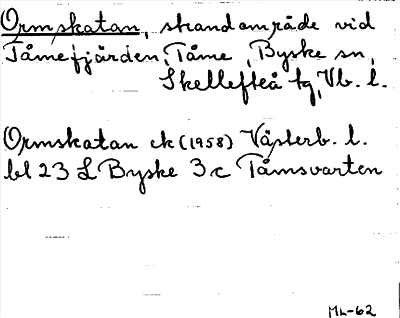 Ormskatan, strandområde vid
Tåmefjärden, Tåme, Byske sn,
Skellefteå tg, Vb. l.
Ormskatan ek (1958) Västerb. l.
bl 23 L Byske 3 c Tåmsvarten
ML-62